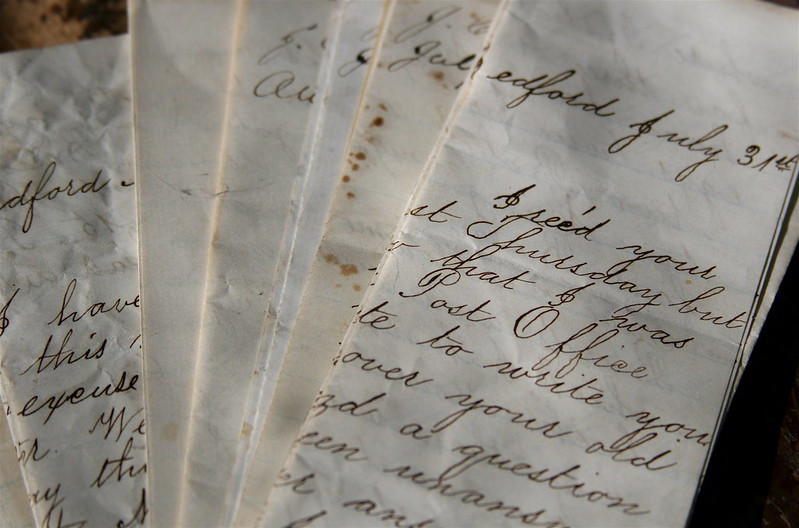 dford
I have
this
excuse
We
Au
J. Jul
edford July 31st
I rec'd your
st Thursday but
that I was
Post Office
te to write you
over your old
a question
een unans
er ans